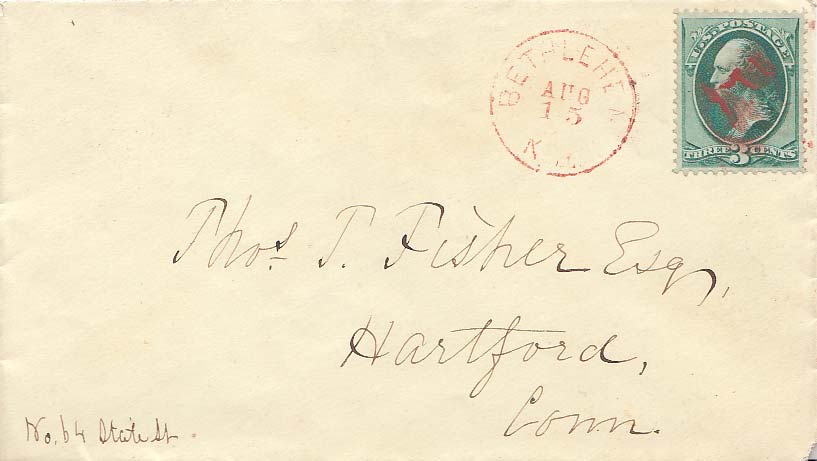 BETHLEHEM
AUG
15
N.H.
U.S. POSTAGE
THREE 3 CENTS
Thos. T. Fisher Esq,
Hartford,
Conn.
No. 64 State St.